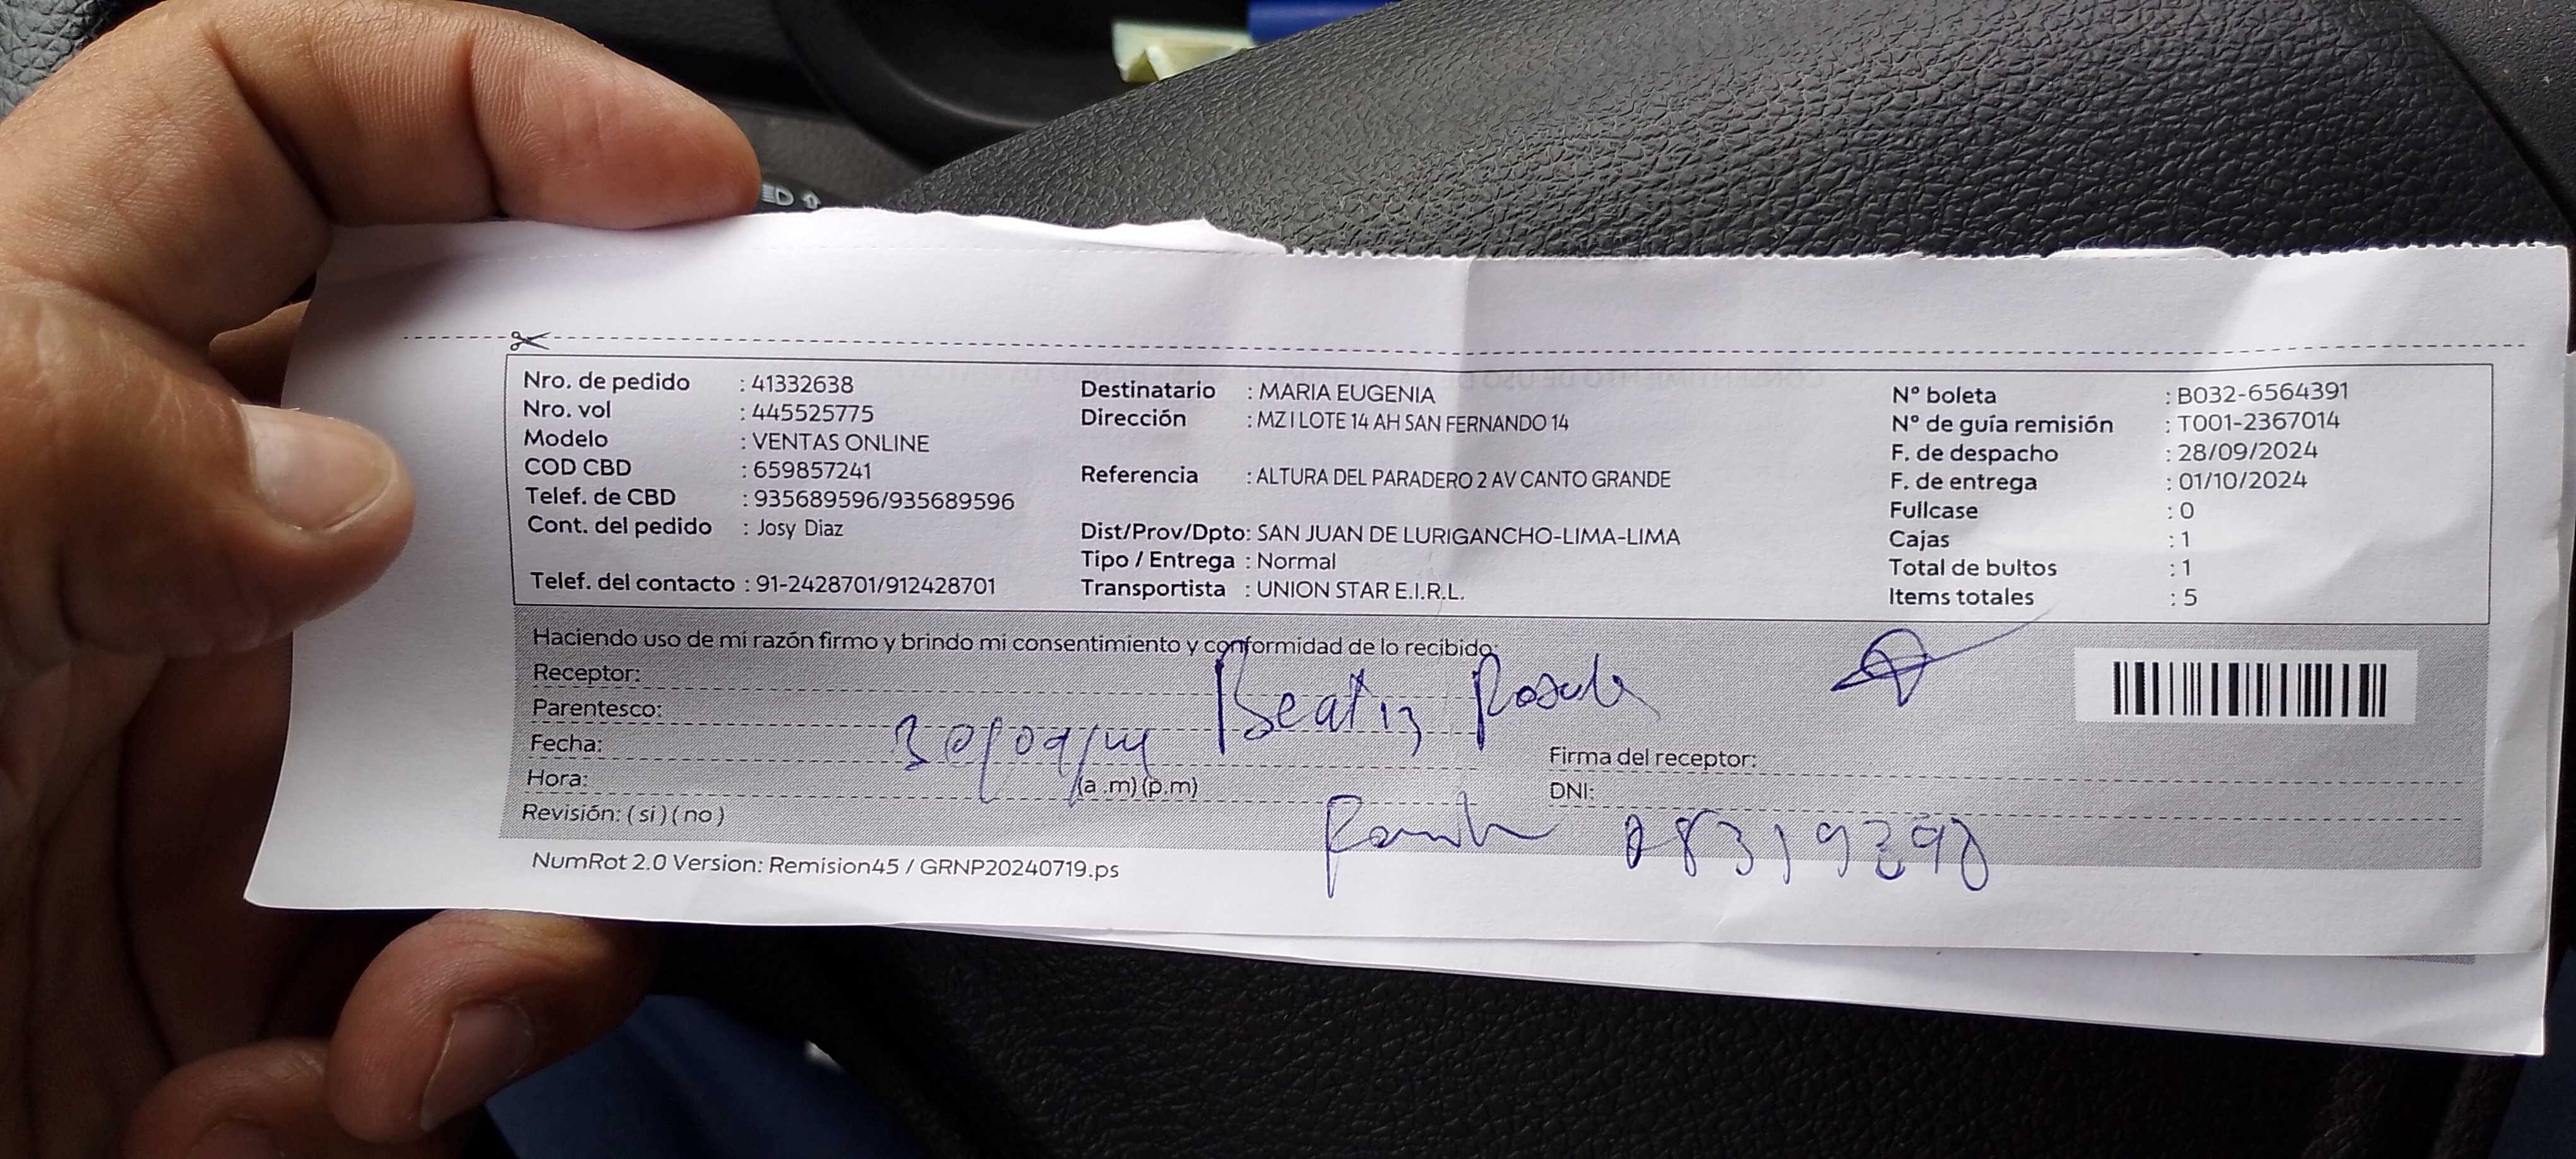 Nro. de pedido : 41332638
Nro. vol : 445525775
Modelo : VENTAS ONLINE
COD CBD : 659857241
Telef. de CBD : 935689596/935689596
Cont. del pedido : Josy Diaz
Telef. del contacto : 91-2428701/912428701
Destinatario : MARIA EUGENIA
Dirección : MZ I LOTE 14 AH SAN FERNANDO 14
Referencia : ALTURA DEL PARADERO 2 AV CANTO GRANDE
Dist/Prov/Dpto: SAN JUAN DE LURIGANCHO-LIMA-LIMA
Tipo / Entrega : Normal
Transportista : UNION STAR E.I.R.L.
Nº boleta : B032-6564391
Nº de guía remisión : T001-2367014
F. de despacho : 28/09/2024
F. de entrega : 01/10/2024
Fullcase : 0
Cajas : 1
Total de bultos : 1
Items totales : 5
Haciendo uso de mi razón firmo y brindo mi consentimiento y conformidad de lo recibido:
Receptor: Beatriz
Parentesco:
Fecha: 30/09/24
Hora: (a .m) (p.m)
Revisión: ( si ) ( no )
Firma del receptor:
DNI:
NumRot 2.0 Version: Remision45 / GRNP20240719.ps